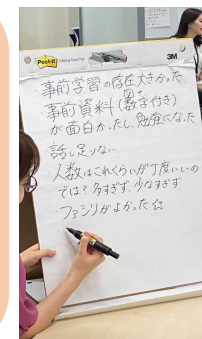 Post-it
3M
・事前学習の存在大きかった
事前資料(男女数字付き)
が面白かったし、勉強になった
・話し足りない
・人数はこれくらいが丁度いいの
では？多すぎず、少なすぎず
・ファシリがよかった☆